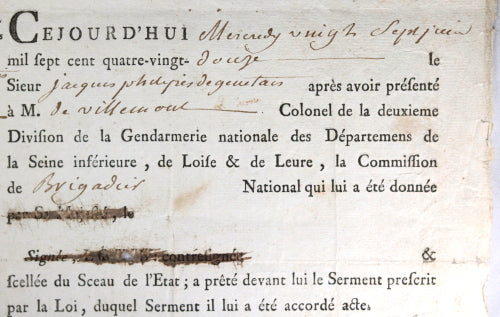 CEJOURD'HUI Mercredy vingt Sept juin
mil sept cent quatre-vingt-douze le
Sieur jacques philipes degenetais après avoir présenté
à M. de villemont Colonel de la deuxieme
Division de la Gendarmerie nationale des Départemens de
la Seine inférieure, de Loise & de Leure, la Commission
de Brigadier National qui lui a été donnée
par Sa le
Signée, contresignée &
scellée du Sceau de l'Etat; a prêté devant lui le Serment prescrit
par la Loi, duquel Serment il lui a été accordé acte.